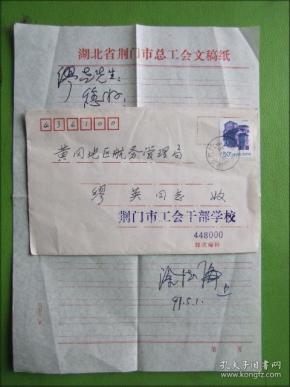 湖北省荆门市总工会文稿纸
先生：
您好！
436100
黄冈地区航务管理局
缪英同志 收
荆门市工会干部学校
448000
邮政编码
97.5.1.
第 页
孔夫子旧书网